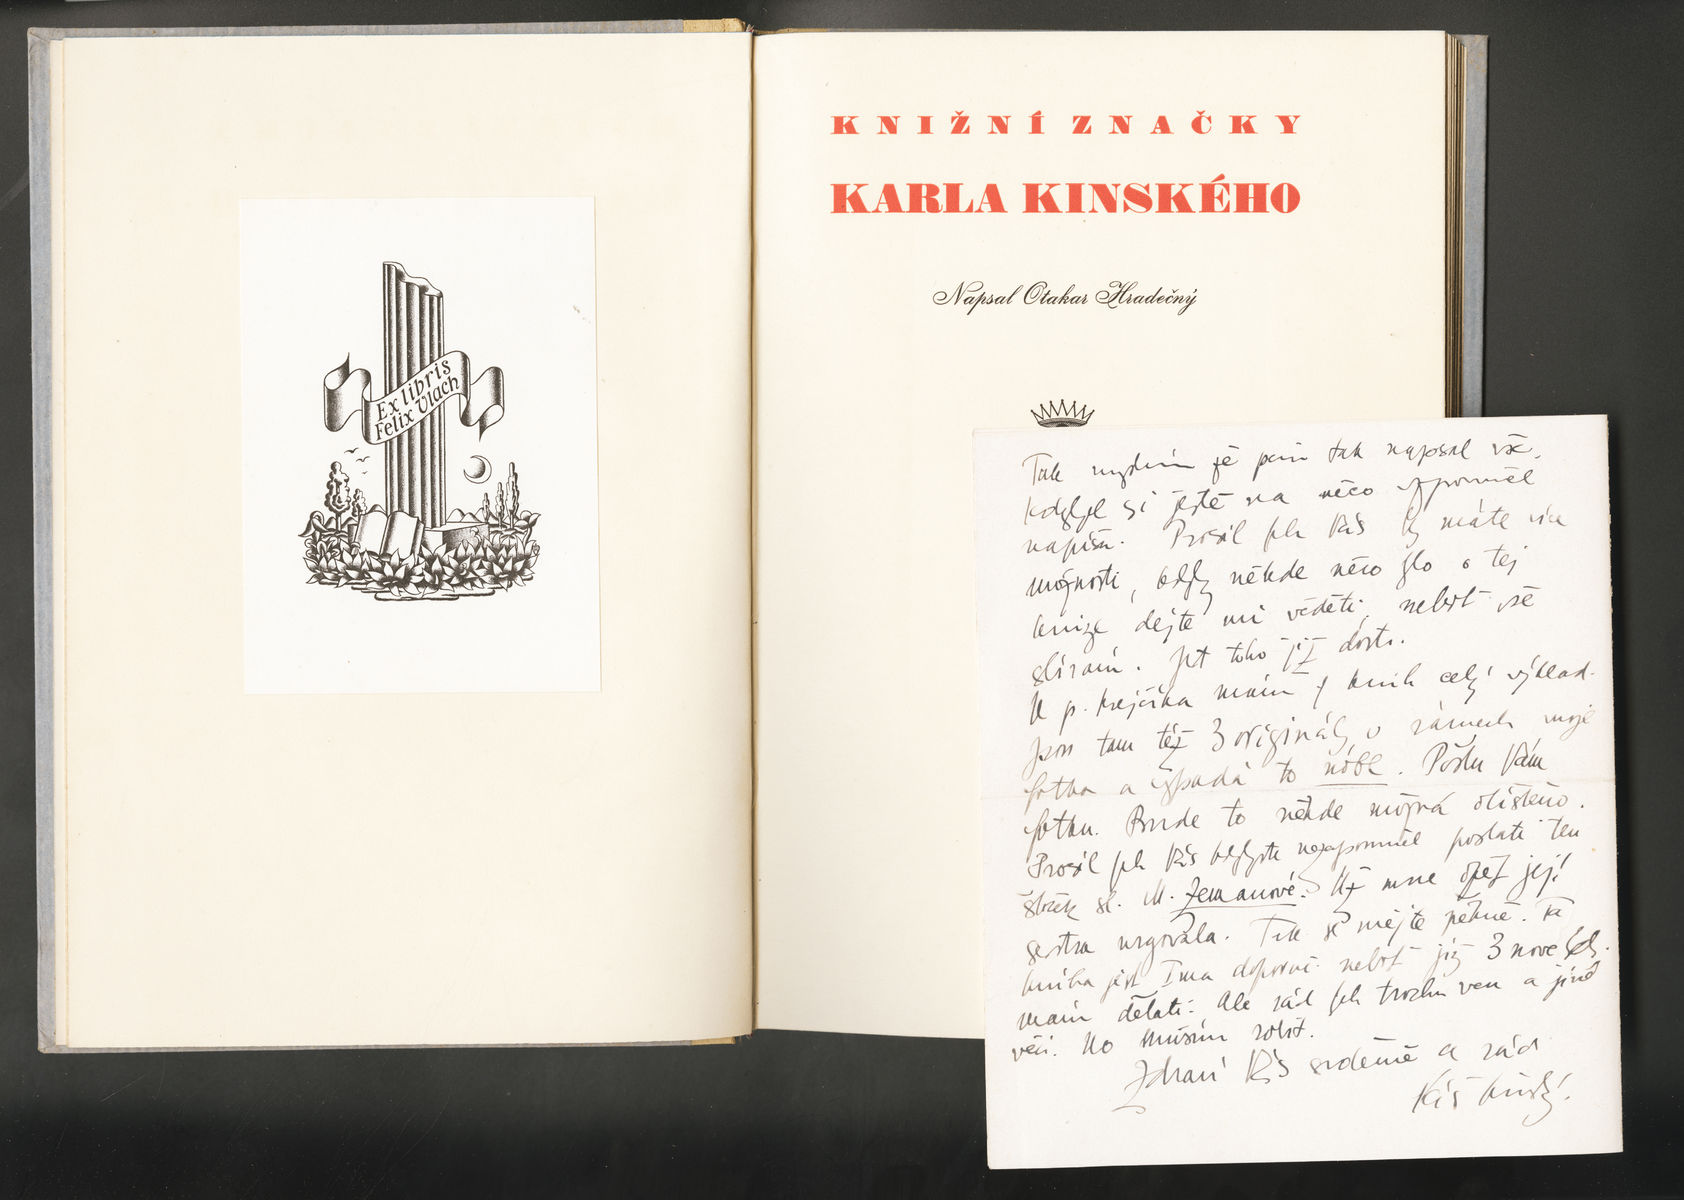 Ex libris
Felix Vlach
KNIŽNÍ ZNAČKY
KARLA KINSKÉHO
Napsal Otakar Hradečný
Tak myslím že pan tak napsal vše.
si ještě na něco vzpomněl
napíšu. Prosil bch Vás by máte více
možnosti, kdyby někde něco šlo o tej
knize dejte mi věděti, nebot vše
sbírám. Jet toho již dosti.
U p. Krejčíka mám z knih celý výklad.
Jsou tam též 3 originály v rámech moje
fotka a vypadá to nóbl. Pošlu Vám
fotku. Bude to někde možná otištěno.
Prosil bch Vás kdybyste nezapomněl poslati ten
štoček sl. M. Zemanové. Už mne opět její
sestra urgovala. Tak se mějte pěkně. Ta
kniha jest nebot již 3 nové
mám dělati. Ale rád bch trochu ven a jiné
věci. No musím robit.
Zdraví Vás srdečně a rád
Váš Kinský.